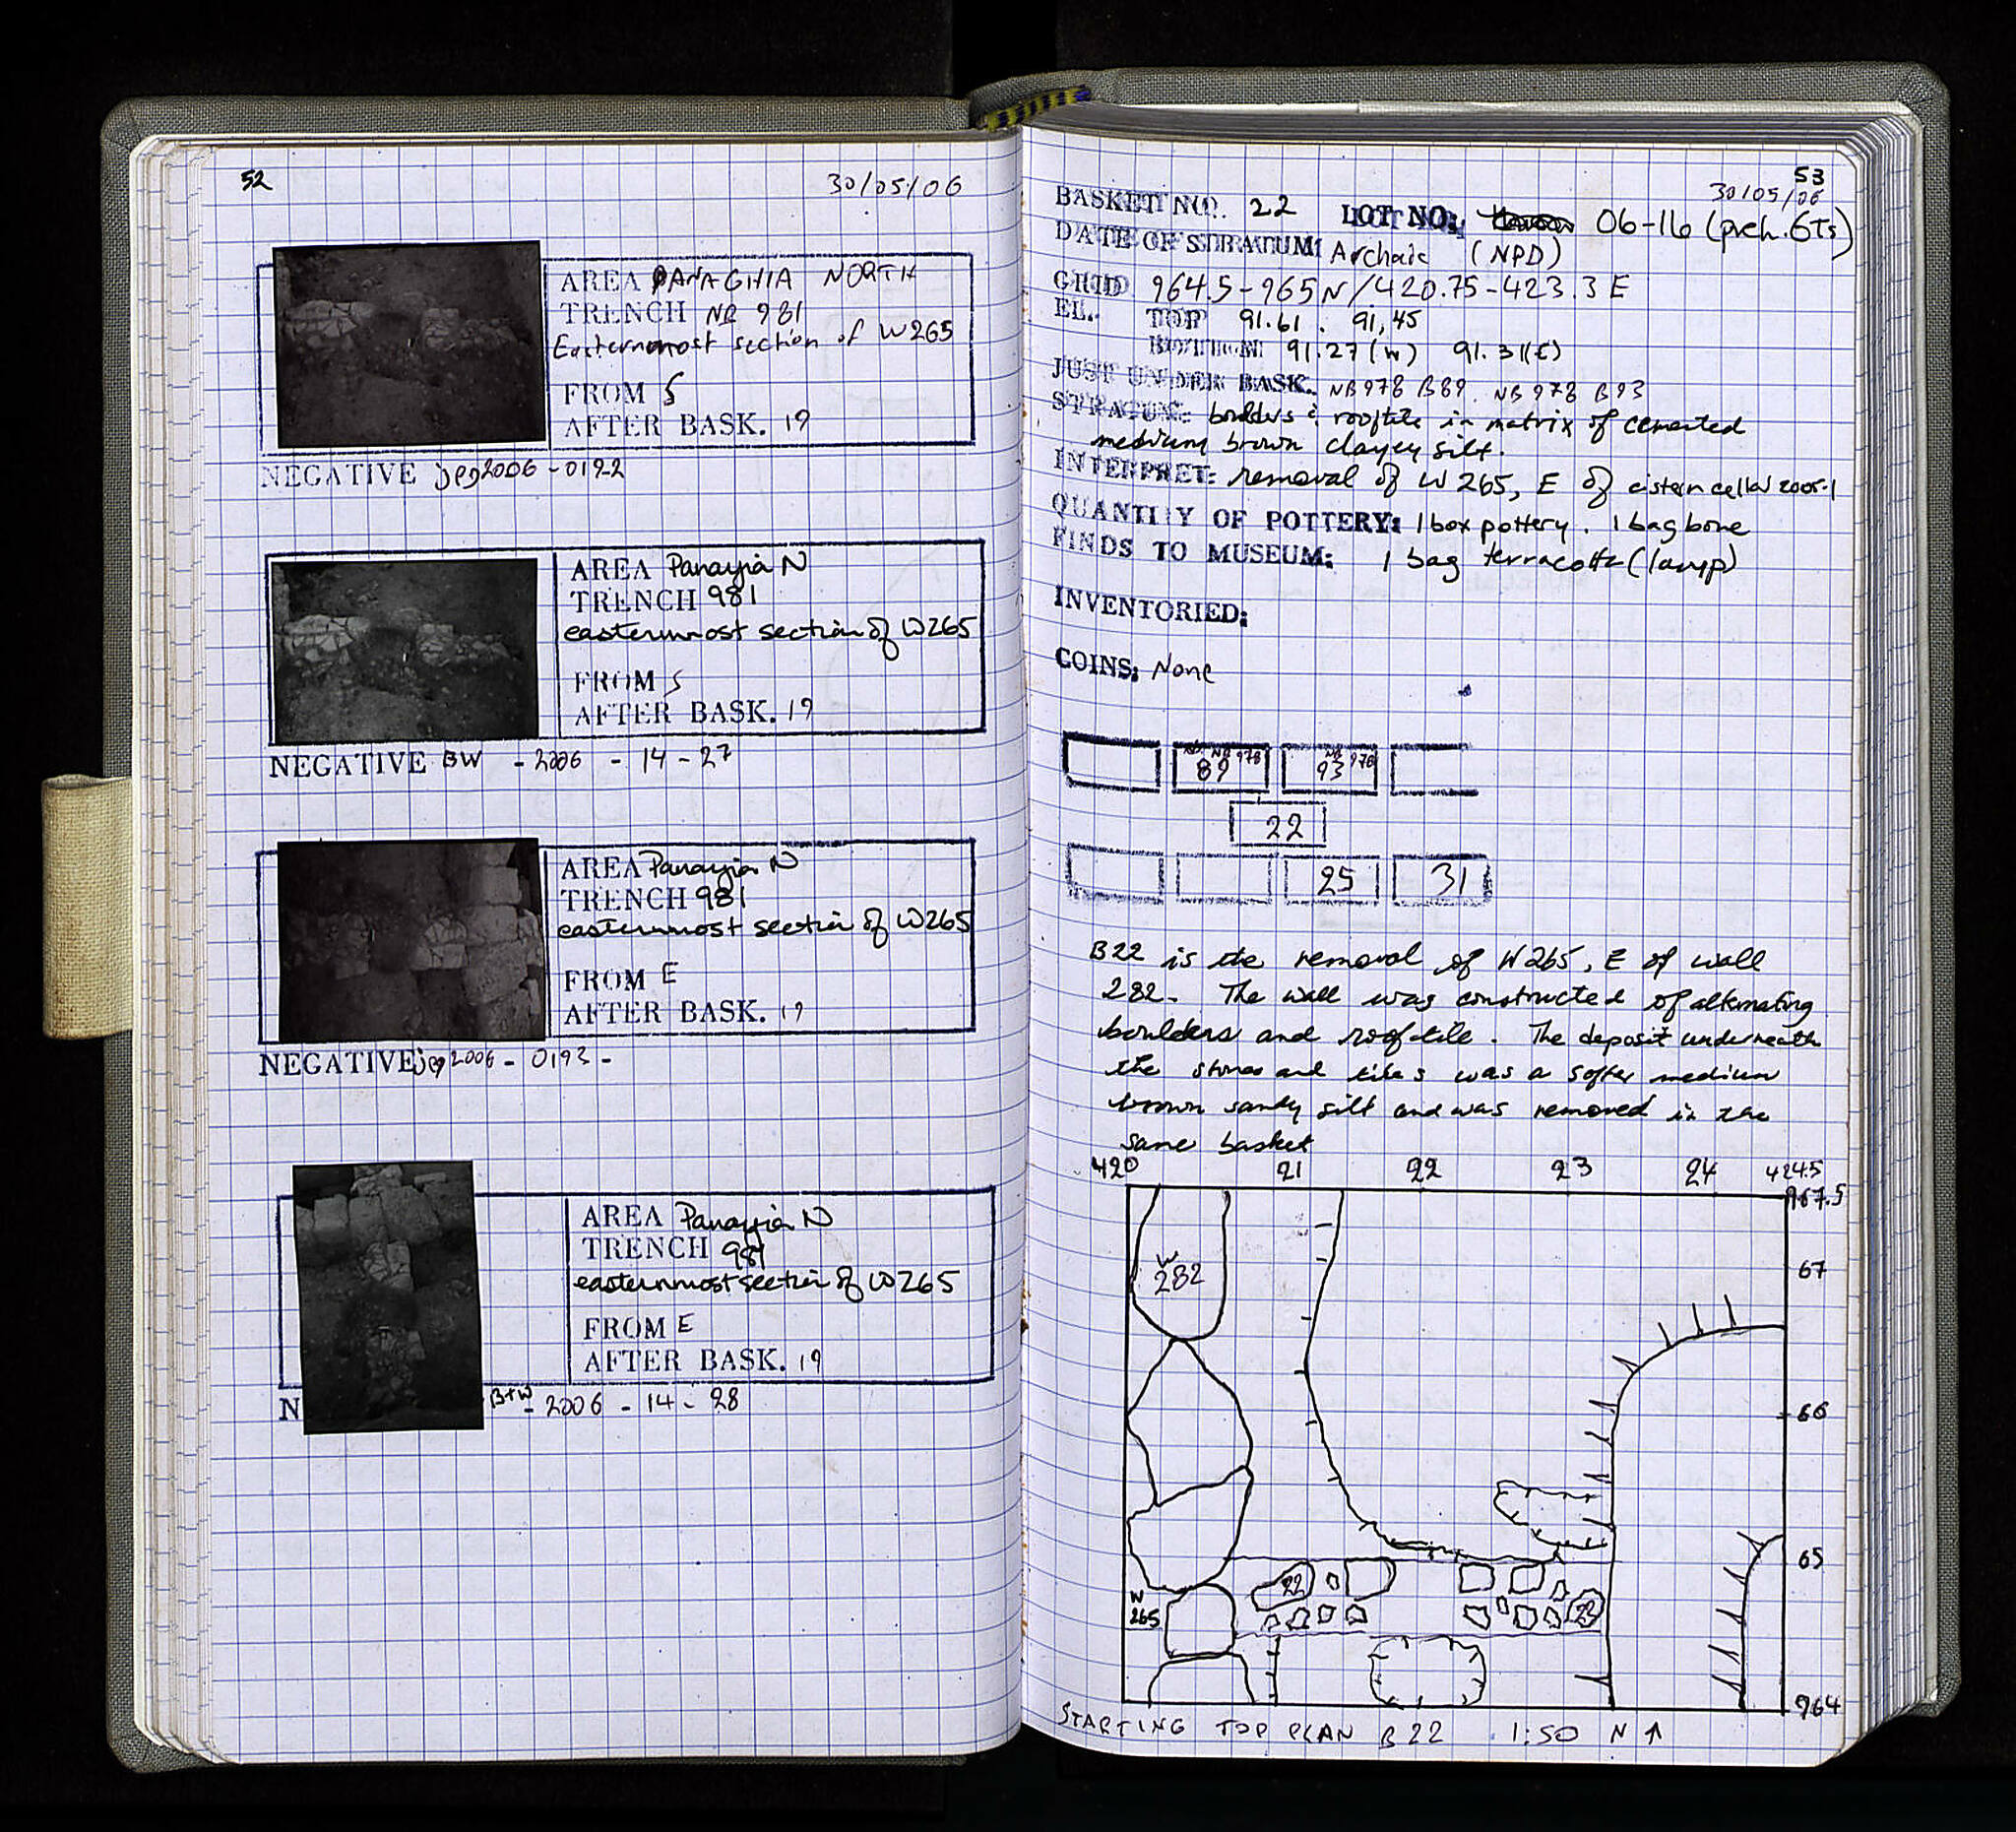 52
30/05/06
AREA PANAGHIA NORTH
TRENCH NB 981
Easternmost section of W265
FROM S
AFTER BASK. 19
NEGATIVE jpg2006-0192
AREA Panayia N
TRENCH 981
easternmost section of W265
FROM S
AFTER BASK. 19
NEGATIVE BW - 2006 - 14 - 27
AREA Panayia N
TRENCH 981
easternmost section of W265
FROM E
AFTER BASK. 19
NEGATIVE jpg 2006 - 0193 -
AREA Panayia N
TRENCH 981
easternmost section of W265
FROM E
AFTER BASK. 19
N B+W - 2006 - 14 - 28
53
30/05/06
BASKET NO. 22 LOT NO: 06-16 (pseh. 6Ts)
DATE OF STRATUM: Archaic (NPD)
GRID 964.5-965N/420.75-423.3E
EL. TOP 91.61. 91,45
BOTTOM: 91.27(W) 91.31(E)
JUST UNDER BASK. NB978 B89. NB978 B93
STRATUM: boulders & rooftile in matrix of cemented
medium brown clayey silt.
INTERPRET: removal of W265, E of cistern cella 2005-1
QUANTITY OF POTTERY: 1 box pottery. 1 bag bone
FINDS TO MUSEUM: 1 bag terracotta (lamp)
INVENTORIED:
COINS: None
NB 978 89
NB 978 93
22
25 31
B22 is the removal of W265, E of wall
282. The wall was constructed of alternating
boulders and rooftile. The deposit underneath
the stones and tiles was a softer medium
brown sandy silt and was removed in the
same basket
420 21 22 23 24 424.5
967.5
W 282
67
66
65
22
22
W 265
964
STARTING TOP PLAN B22 1:50 N ↑